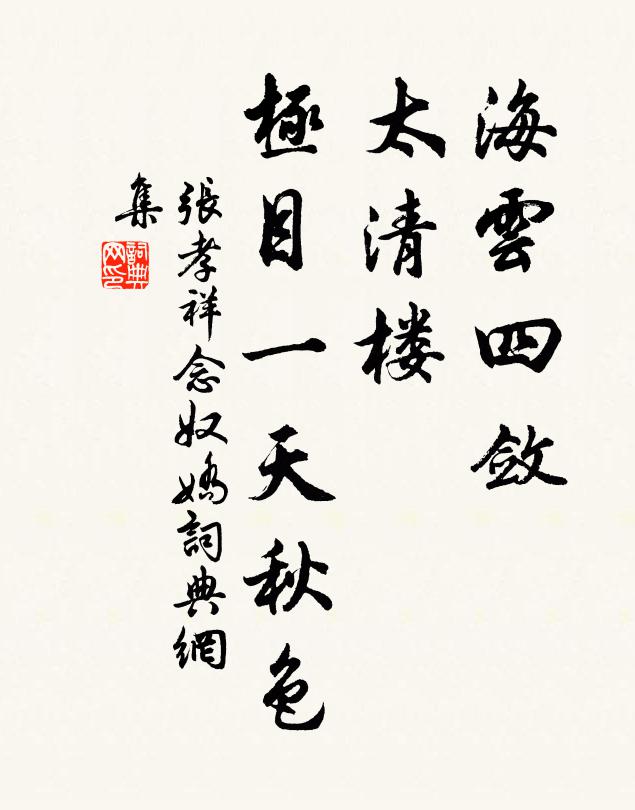 海雲四斂
太清楼
極目一天秋色
張孝祥念奴嬌詞典網
集
詞典网印